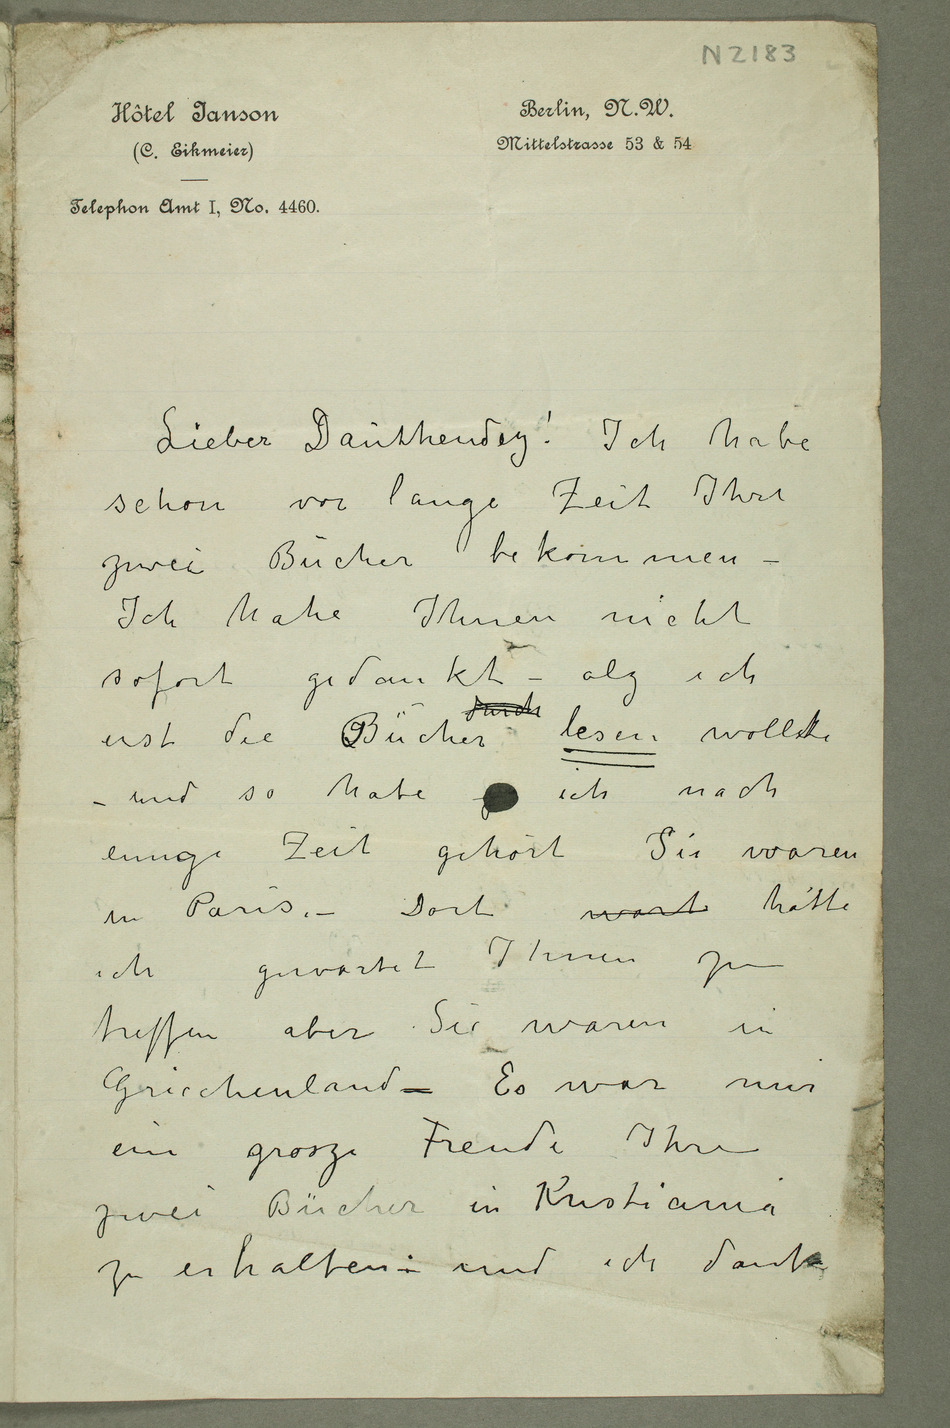 N 2183
Hôtel Janson
(C. Eikmeier)
Telephon Amt I, No. 4460.
Berlin, N.W.
Mittelstrasse 53 & 54
Lieber Dauthendey! Ich habe
schon vor lange Zeit Ihre
zwei Bücher bekommen –
Ich habe Ihnen nicht
sofort gedankt – alz ich
durch
erst die Bücher lesen wollte
– und so habe ich nach
einige Zeit gehört Sie waren
in Paris. – Dort wart hätte
ich gewartet Ihnen zu
treffen aber Sie waren in
Griechenland – Es war mir
ein grosze Freude Ihre
zwei Bücher in Kristiania
zu erhalten – und ich danke